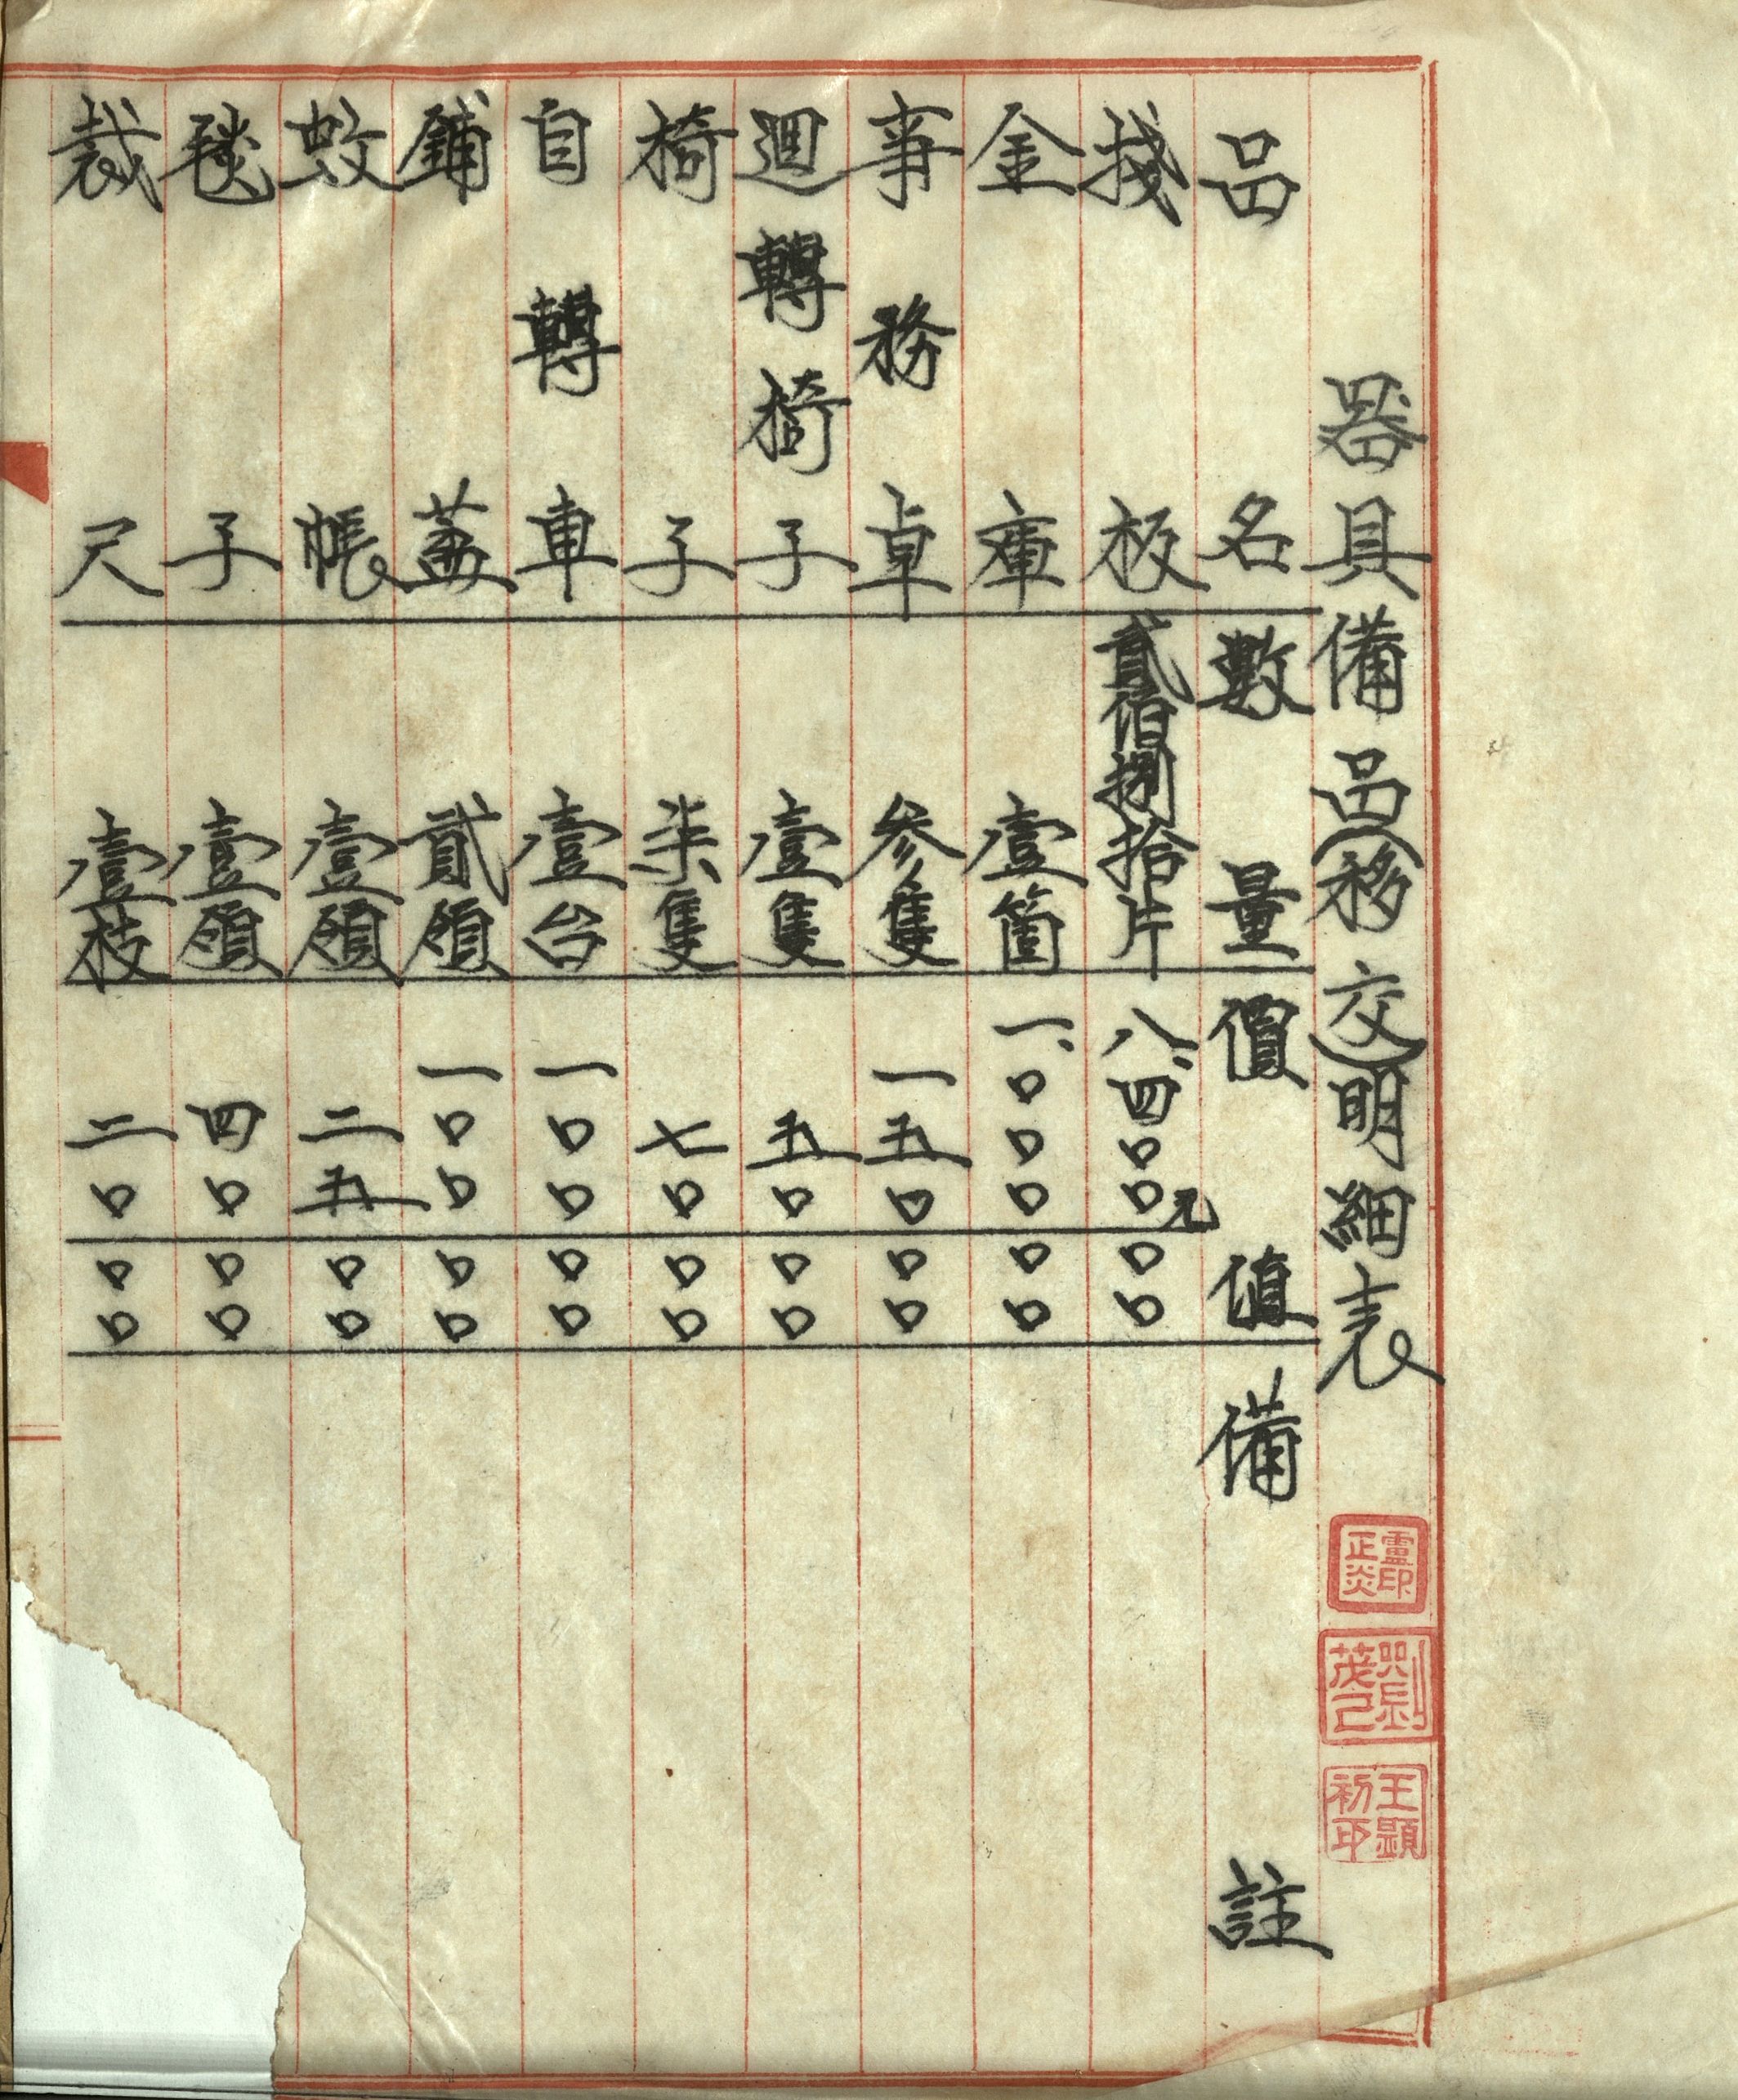 器具備品(移交)明細表
盧印正炎
劉茂己
王顯初印
品名 數量 價值 備註
棧板 貳佰捌拾片 八、四〇〇元〇〇
金庫 壹箇 一、〇〇〇〇〇
事務卓 參隻 一五〇〇〇
迴轉椅子 壹隻 五〇〇〇
椅子 柒隻 七〇〇〇
自轉車 壹台 一〇〇〇〇
鋪蓋 貳領 一〇〇〇〇
蚊帳 壹領 二五〇〇
毯子 壹領 四〇〇〇
裁尺 壹枝 二〇〇〇